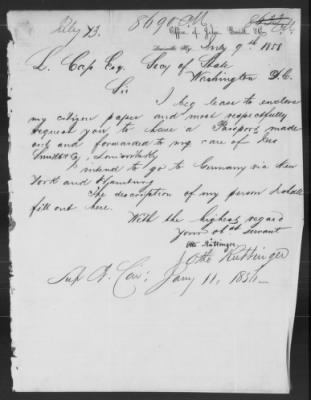 July 13. 8690
Louisville Ky. July 9th 1858
L. Cass Esq. Secy of State
Washington D.C.
Sir
I beg leave to enclose
my citizen paper and most respectfully
request you to have a Passport made
out and forwarded to my care of Geo
Louisville Ky
I intend to go to Germany via New
York and Hamburg
The description of my person I shall
fill out here.
With the highest regard
Your obdt servant
Otto Rüttinger
Otto Ruttinger
Jany 11, 185